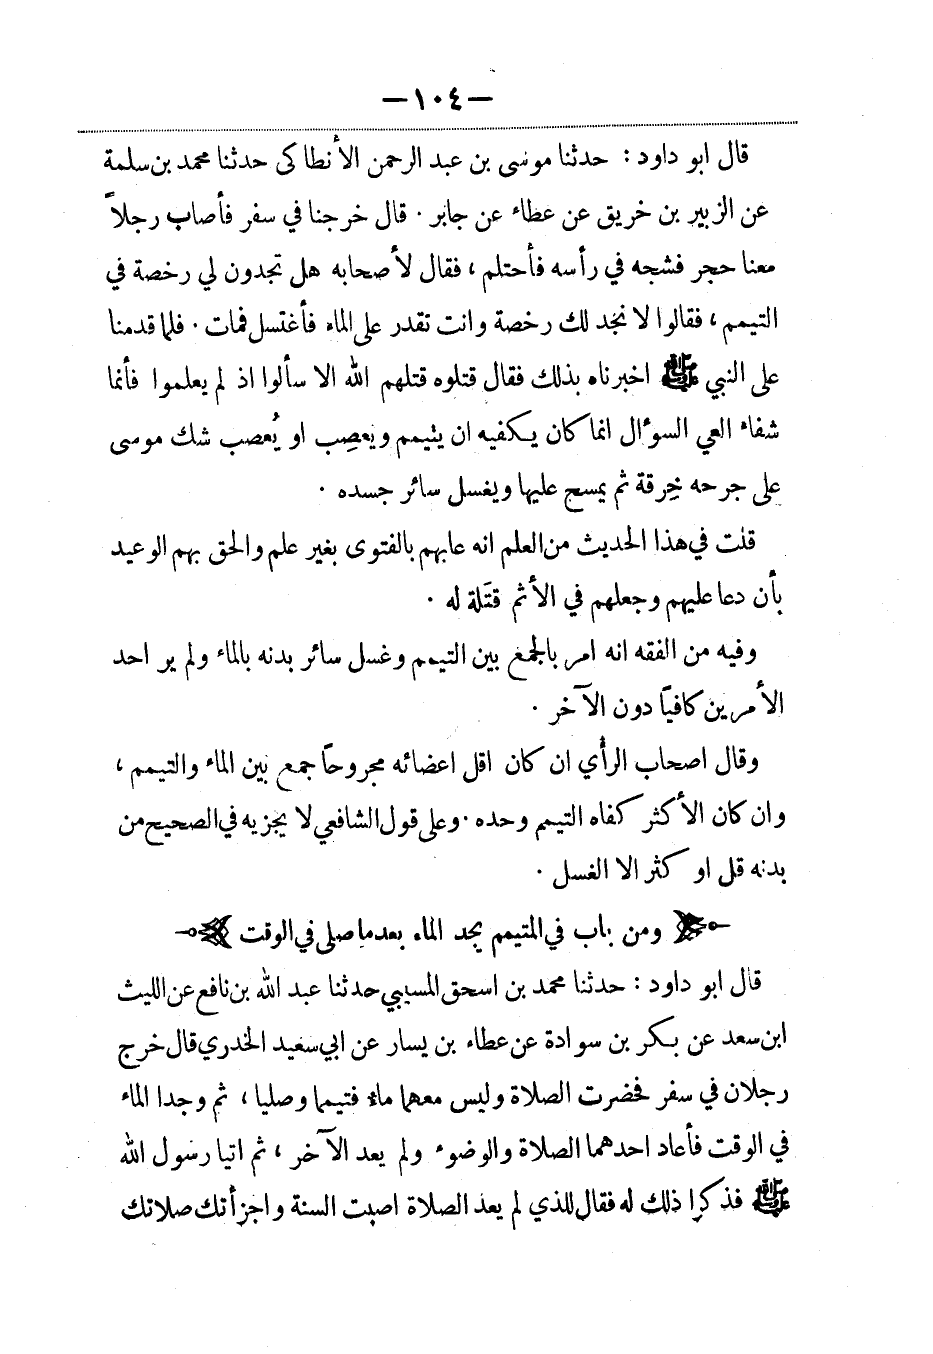 — ١٠٤ —
قال ابو داود : حدثنا موسى بن عبد الرحمن الأنطاكى حدثنا محمد بن سلمة
عن الزبير بن خريق عن عطاء عن جابر . قال خرجنا في سفر فأصاب رجلاً
معنا حجر فشجه في رأسه فأحتلم ، فقال لأصحابه هل تجدون لي رخصة في
التيمم ، فقالوا لا نجد لك رخصة وانت تقدر على الماء فأغتسل فمات . فلما قدمنا
على النبي ﷺ اخبرناه بذلك فقال قتلوه قتلهم الله الا سألوا اذ لم يعلموا فأنما
شفاء العي السوءال انما كان يكفيه ان يتيمم ويعصِب او يُعصب شك موسى
على جرحه خِرقة ثم يمسح عليها ويغسل سائر جسده .
قلت في هذا الحديث من العلم انه عابهم بالفتوى بغير علم والحق بهم الوعيد
بأن دعا عليهم وجعلهم في الأثم قتَلة له .
وفيه من الفقه انه امر بالجمع بين التيمم وغسل سائر بدنه بالماء ولم ير احد
الأمرين كافياً دون الآخر .
وقال اصحاب الرأي ان كان اقل اعضائه مجروحاً جمع بين الماء والتيمم ،
وان كان الأكثر كفاه التيمم وحده . وعلى قول الشافعي لا يجزيه في الصحيح من
بدنه قل او كثر الا الغسل .
ومن باب في المتيمم يجد الماء بعد ما صلى في الوقت
قال ابو داود : حدثنا محمد بن اسحق المسيبي حدثنا عبد الله بن نافع عن الليث
ابن سعد عن بكر بن سوادة عن عطاء بن يسار عن ابي سعيد الخدري قال خرج
رجلان في سفر فحضرت الصلاة وليس معهما ماء فتيمما وصليا ، ثم وجدا الماء
في الوقت فأعاد احدهما الصلاة والوضوء ولم يعد الآخر ، ثم اتيا رسول الله
ﷺ فذكرا ذلك له فقال للذي لم يعد الصلاة اصبت السنة واجزأتك صلاتك